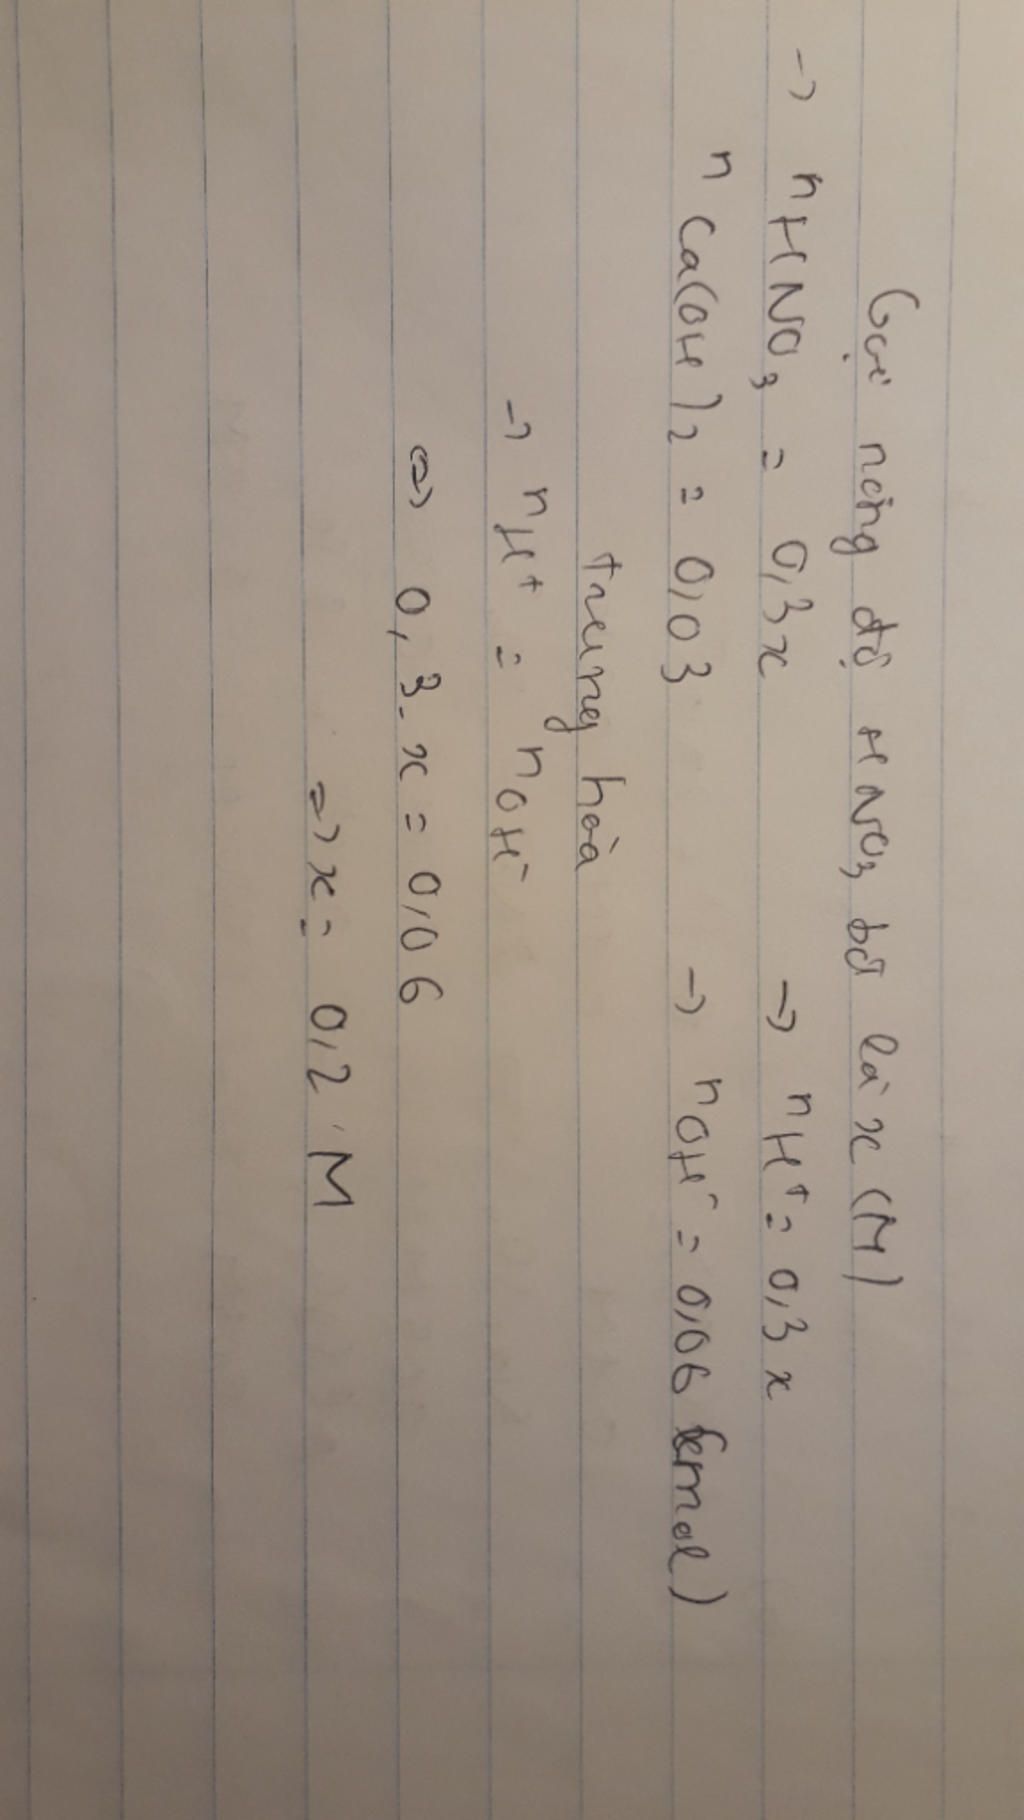 Gọi nồng độ HNO₃ bđ là x (M)
→ nHNO₃ = 0,3x → nH⁺ = 0,3x
nCa(OH)₂ = 0,03 → nOH⁻ = 0,06 (mol)
trung hoà
→ nH⁺ = nOH⁻
⇔ 0,3.x = 0,06
=> x = 0,2 M